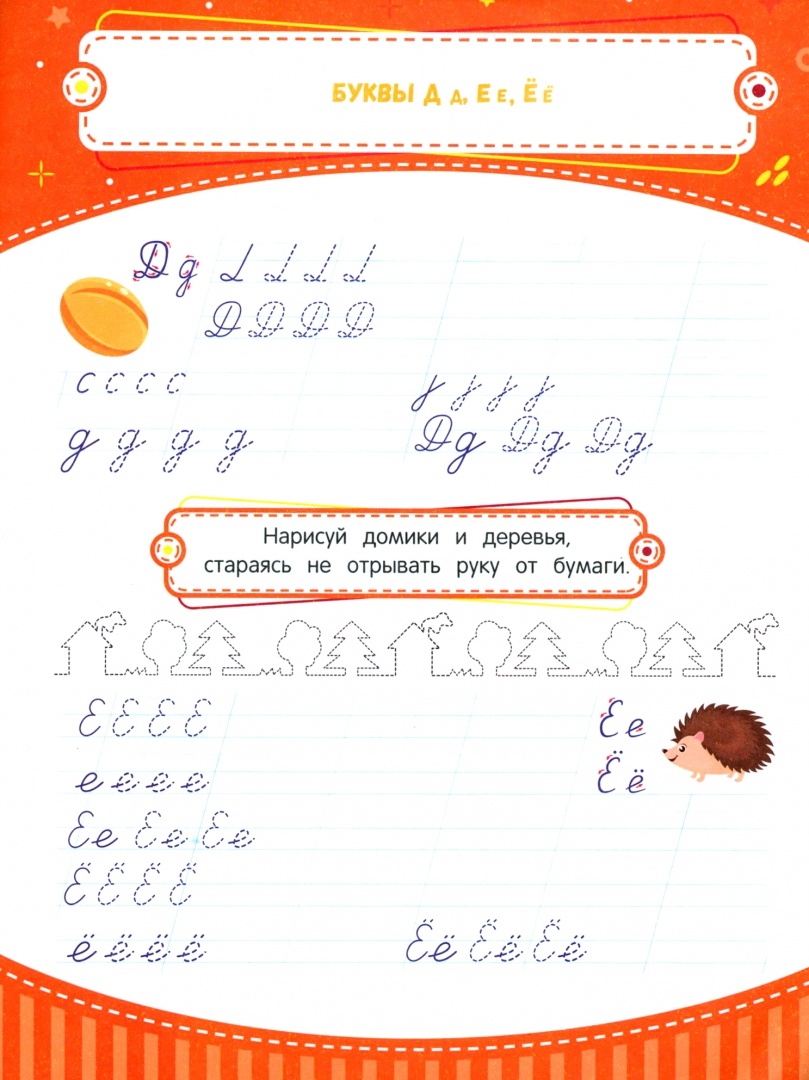 БУКВЫ Д д, Е е, Ё ё
Д д
Д Д Д Д
с с с с
д д д д
Дд Дд Дд
Нарисуй домики и деревья,
стараясь не отрывать руку от бумаги.
Е Е Е Е
Ее
е е е е
Ёё
Ее Ее Ее
Ё Ё Ё Ё
ё ё ё ё
Ёё Ёё Ёё